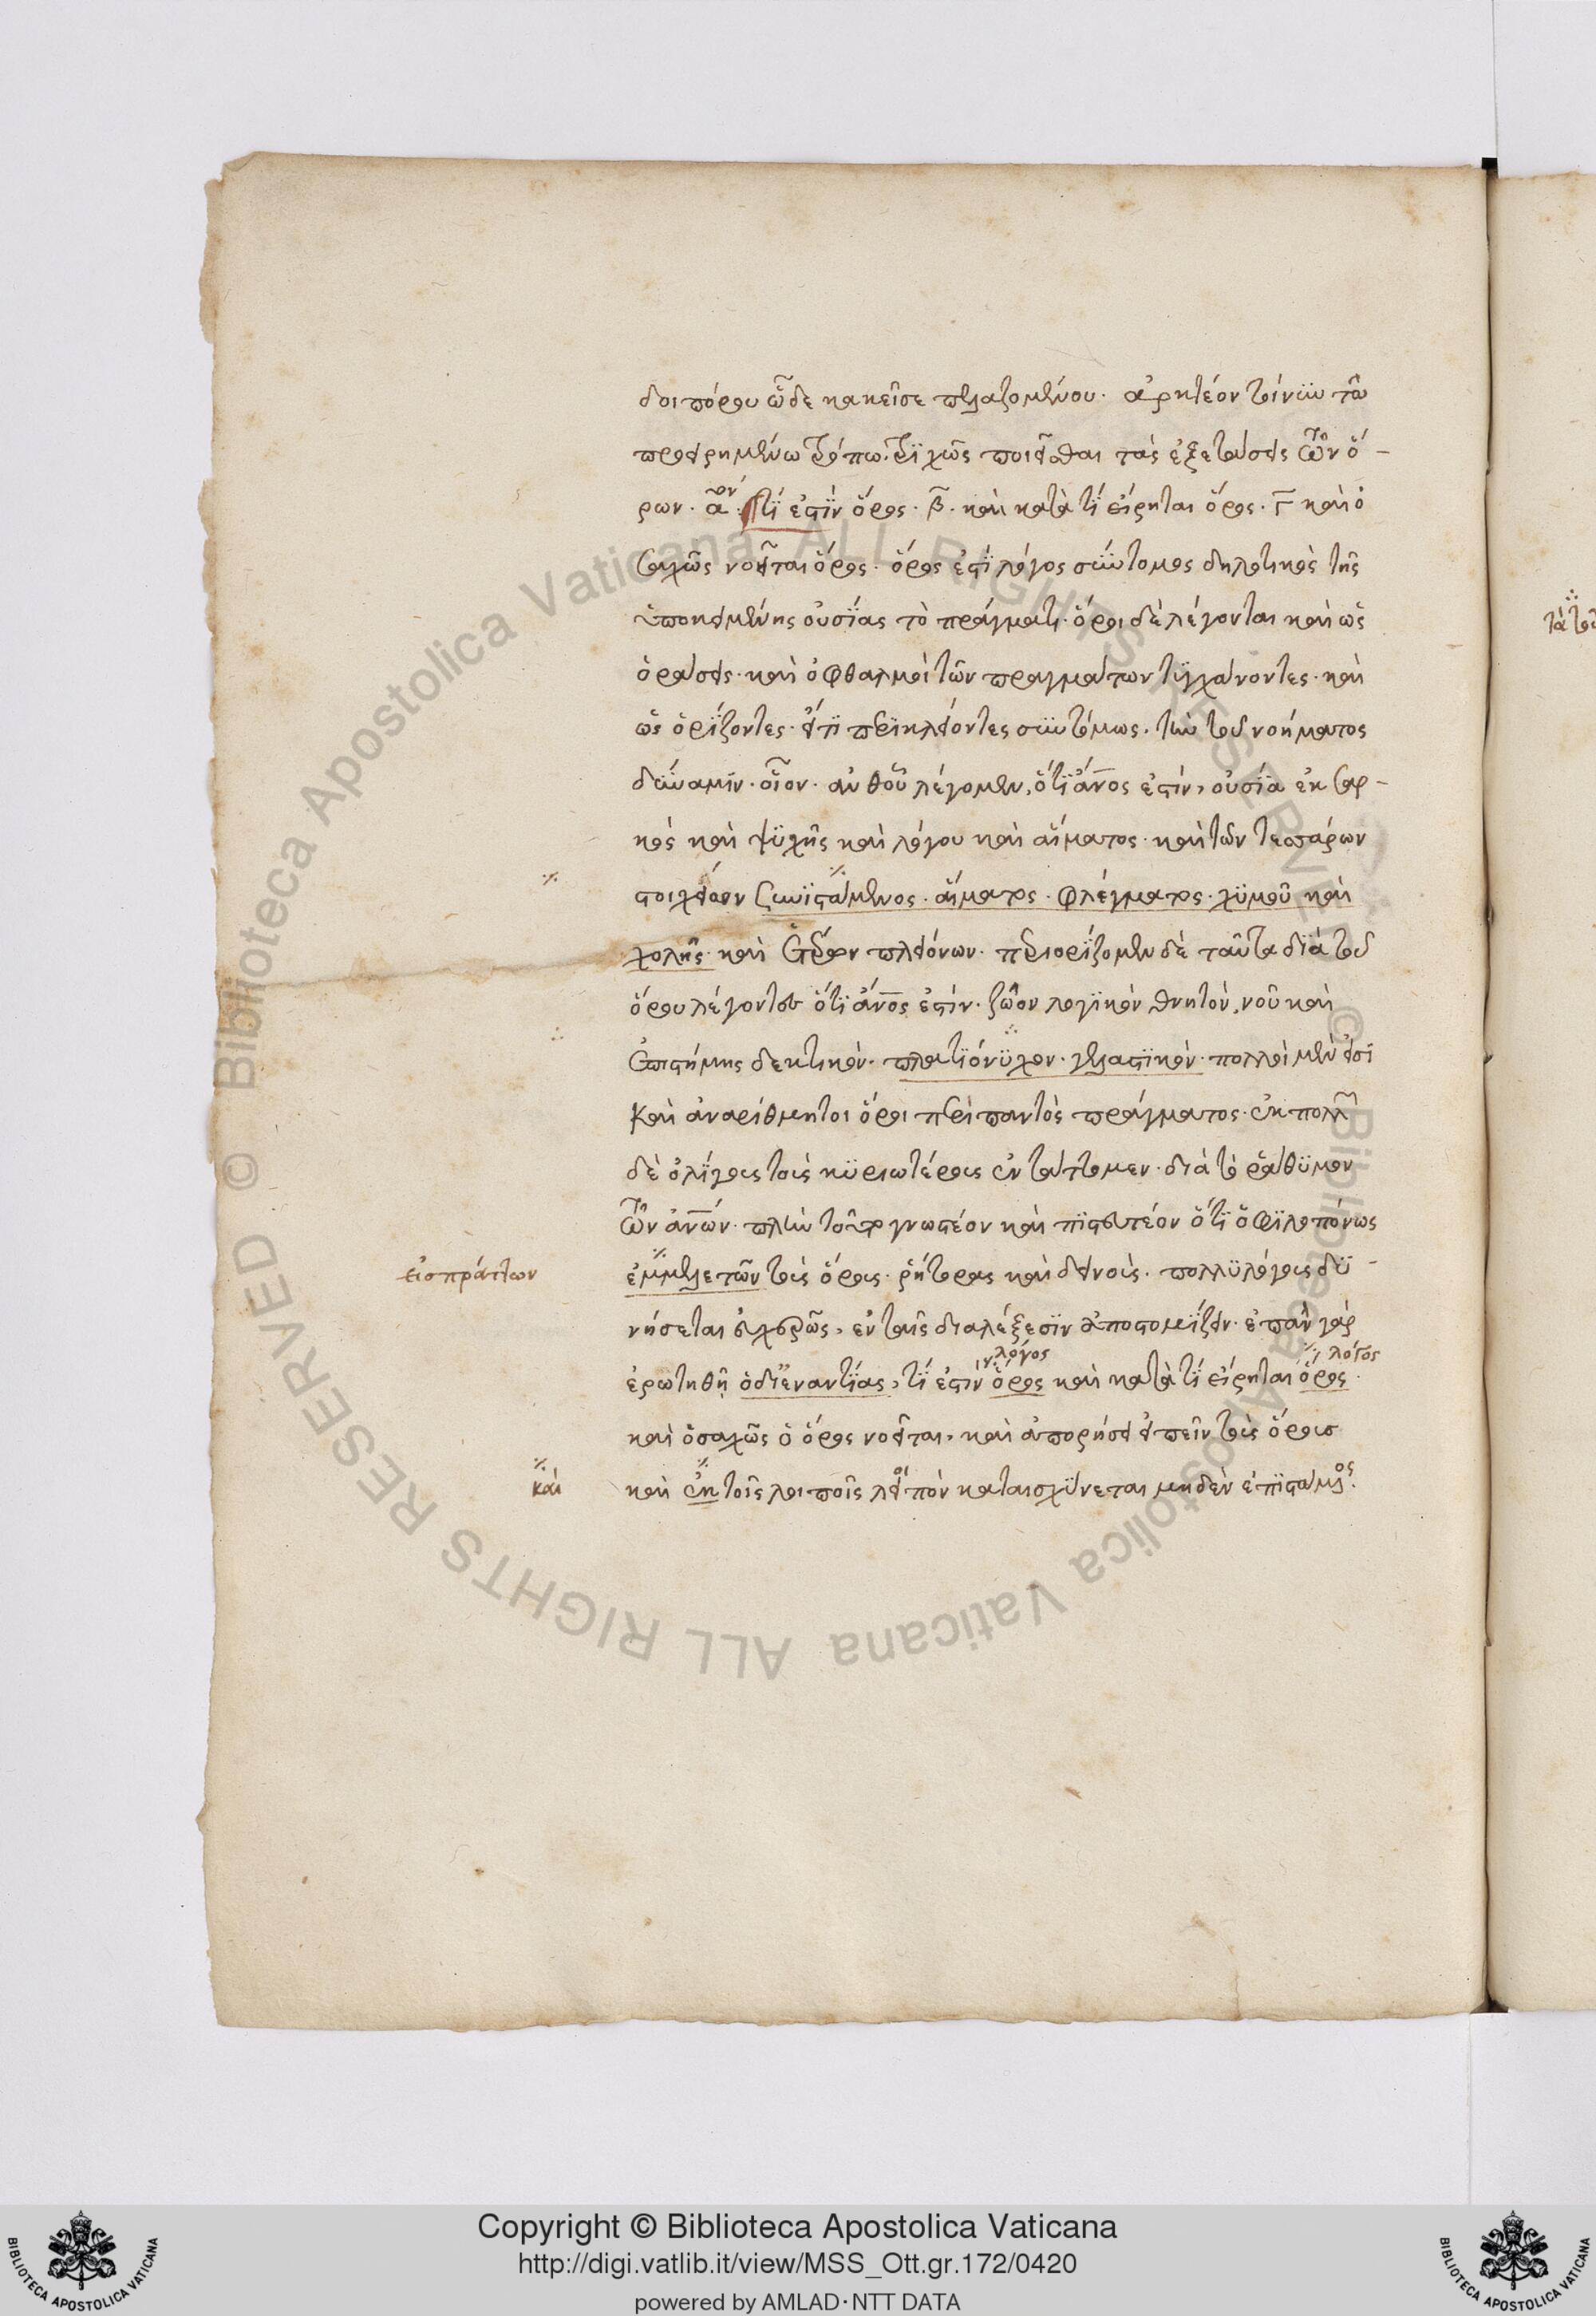 δοιπόρου ὧδε κακεῖσε πελαζομένου. ἀρκτέον τοίνυν τῶ
προειρημένω τρόπω. τριχῶς ποιεῖσθαι τὰς ἐξετάσεις τῶν ὅ-
ρων. α̃ον. τί ἐστὶν ὅρος. β̃. καὶ κατὰ τί εἴρηται ὅρος. γ̃ καὶ ὁ
σαχῶς νοεῖται ὅρος. ὅρος ἐστὶ λόγος σύντομος δηλοτικὸς τῆς
ὑποκειμένης οὐσίας τὸ πράγματι. ὅροι δὲ λέγονται καὶ ὡς
ὁράσεις. καὶ ὀφθαλμοὶ τῶν πραγμάτων τυγχάνοντες. καὶ
ὡς ὁρίζοντες. εἴτι περικλείοντες συντόμως. τὴν τοῦ νοήματος
δύναμϊν. οἷον. ἀνθοῦ λέγομεν, ὅτι ἄνος ἐστίν, οὐσία ἐκ σαρ-
κὸς καὶ ψυχῆς καὶ λόγου καὶ αἵματος. καὶ τῶν τεσσάρων
στοιχείων συνιστάμενος. αἵματος. φλέγματος. χυμοῦ καὶ
χολῆς. καὶ ἑτέρων πλειόνων. περιορίζομεν δὲ ταῦτα διὰ τοῦ
ὅρου λέγοντες ὅτι ἄνος ἐστίν. ζῶον λογικὸν θνητὸν, νοῦ καὶ
ἐπιστήμης δεκτικόν. πλατιόνϋχον. γελαστικόν. πολλοὶ μὲν εἰσὶ
καὶ ἀναρίθμητοι ὅροι περὶ παντὸς πράγματος. ἐκ πολλῶν
δὲ ὀλίγοις τοῖς κυριωτέροις ἐντάττομεν. διὰ τὸ ῥάθυμον
τῶν ἀνων. πλὴν τοῦτο γνωστέον καὶ πιστευτέον ὅτι ὁ φιλοπόνως
εἰσπράττων
ἐμμελετῶν τοὺς ὅρους. ῥήτορας καὶ δεινοὺς. πολλϋλόγους δυ-
νήσεται εὐχερῶς, ἐν ταῖς διαλέξεσιν ἀποστομίζειν. ἐπὰν γὰρ
λόγος
λόγος
ἐρωτηθῆ ὁ διεναντίας, τί ἐστὶν ὅρος καὶ κατὰ τί εἴρηται ὅρος.
καὶ ὁσαχῶς ὁ ὅρος νοεῖται, καὶ ἀπορήσει εἰπεῖν τοὺς ὅρους
καὶ
καὶ ἐκ τοῖς λοιποῖς λοιπὸν καταισχύνεται μηδὲν ἐπιστάμενος.
Copyright © Biblioteca Apostolica Vaticana
http://digi.vatlib.it/view/MSS_Ott.gr.172/0420
powered by AMLAD·NTT DATA